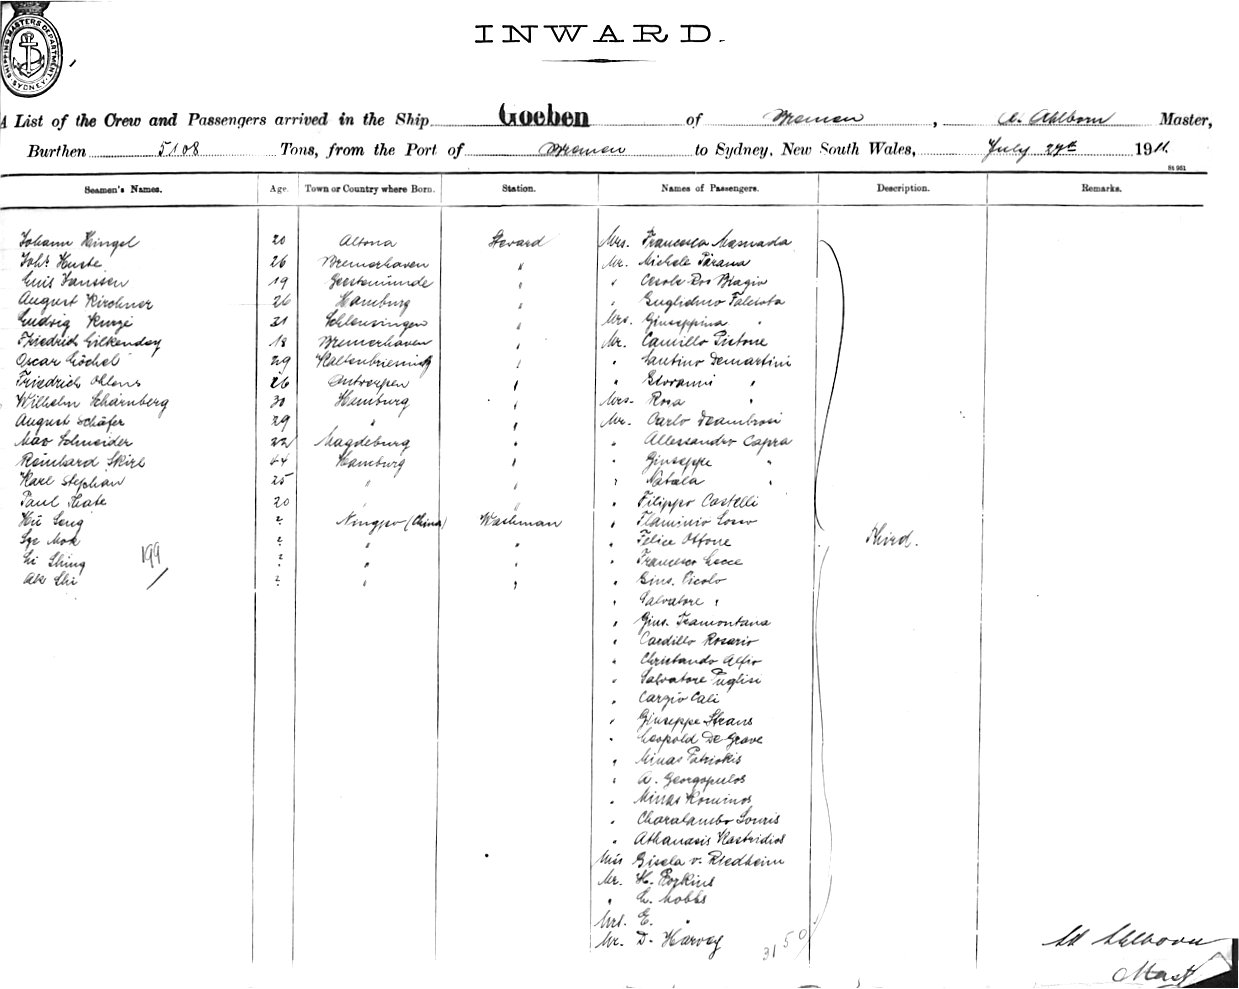 SHIPPING MASTERS DEPARTMENT. SYDNEY.
INWARD.
A List of the Crew and Passengers arrived in the Ship Goeben of Bremen, A. Ahlborn Master,
Burthen 5108 Tons, from the Port of Bremen to Sydney, New South Wales, July 27th 1911.
St 961
Seamen's Names. Age. Town or Country where Born. Station. Names of Passengers. Description. Remarks.
Johann Hingel 20 Altona Steward Mrs. Francesca Masnada
Johs Huste 26 Bremerhaven " Mr. Michele
Janssen 19 Geestemünde " "
August Kirchner 26 Hamburg " " Guglielmo
Ludwig Kunze 31 Schleusingen " Mrs. Giuseppina "
Friedrich Gilkendey 18 Bremerhaven " Mr. Camillo Pistone
Oscar Göchel 29 " " Santino Demartini
Friedrich Ohlens 26 Antwerpen " " Giovanni "
Wilhelm Scharnberg 30 Hamburg " Mrs. Rosa "
August Schäfer 29 " " Mr. Carlo Deambrosi
Max Schneider 22 Magdeburg " " Allessandro Capra
Reinhard Skirl 44 Hamburg " " Giuseppe "
Karl Stephan 25 " " " Natala "
Paul Hate 20 " " " Filippo Castelli
Hü Seng ? Ningpo (China) Washman " Flaminio
Sze Mok ? " " " Felice Ottone Third.
Li Shing 199 ? " " " Francesco Lecce
Ah Shi ? " " " Gius. Picolo
" Salvatore "
" Gius. Tramontana
" Cardillo Rosario
" Christando Alfio
" Salvatore Puglisi
" Carzio Cali
" Giuseppe Strans
" Leopold De Grave
" Minas Patriokis
" A. Georgopulos
" Minas Kominos
" Charalambo Souris
" Athanasis Kastridios
Miss Gisela v. Riedheim
Mr. H.
" L. Hobbs
Mrs. E. "
Mr. D. Harvey 31 50
Ahlborn
Mast